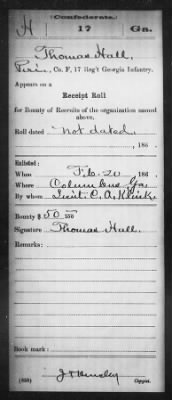 (Confederate.)
H 17 Ga.
Thomas Hall,
Co. F, 17 Reg't Georgia Infantry.
Appears on a
Receipt Roll
for Bounty of Recruits of the organization named
above.
Roll dated not dated,
, 186 .
Enlisted:
When Feb. 20 , 186 .
Where Columbus Ga.
By whom Lieut. C. A. Klink.
Bounty $ 50 00/100
Signature Thomas Hall.
Remarks:
Book mark:
(639)
Copyist.